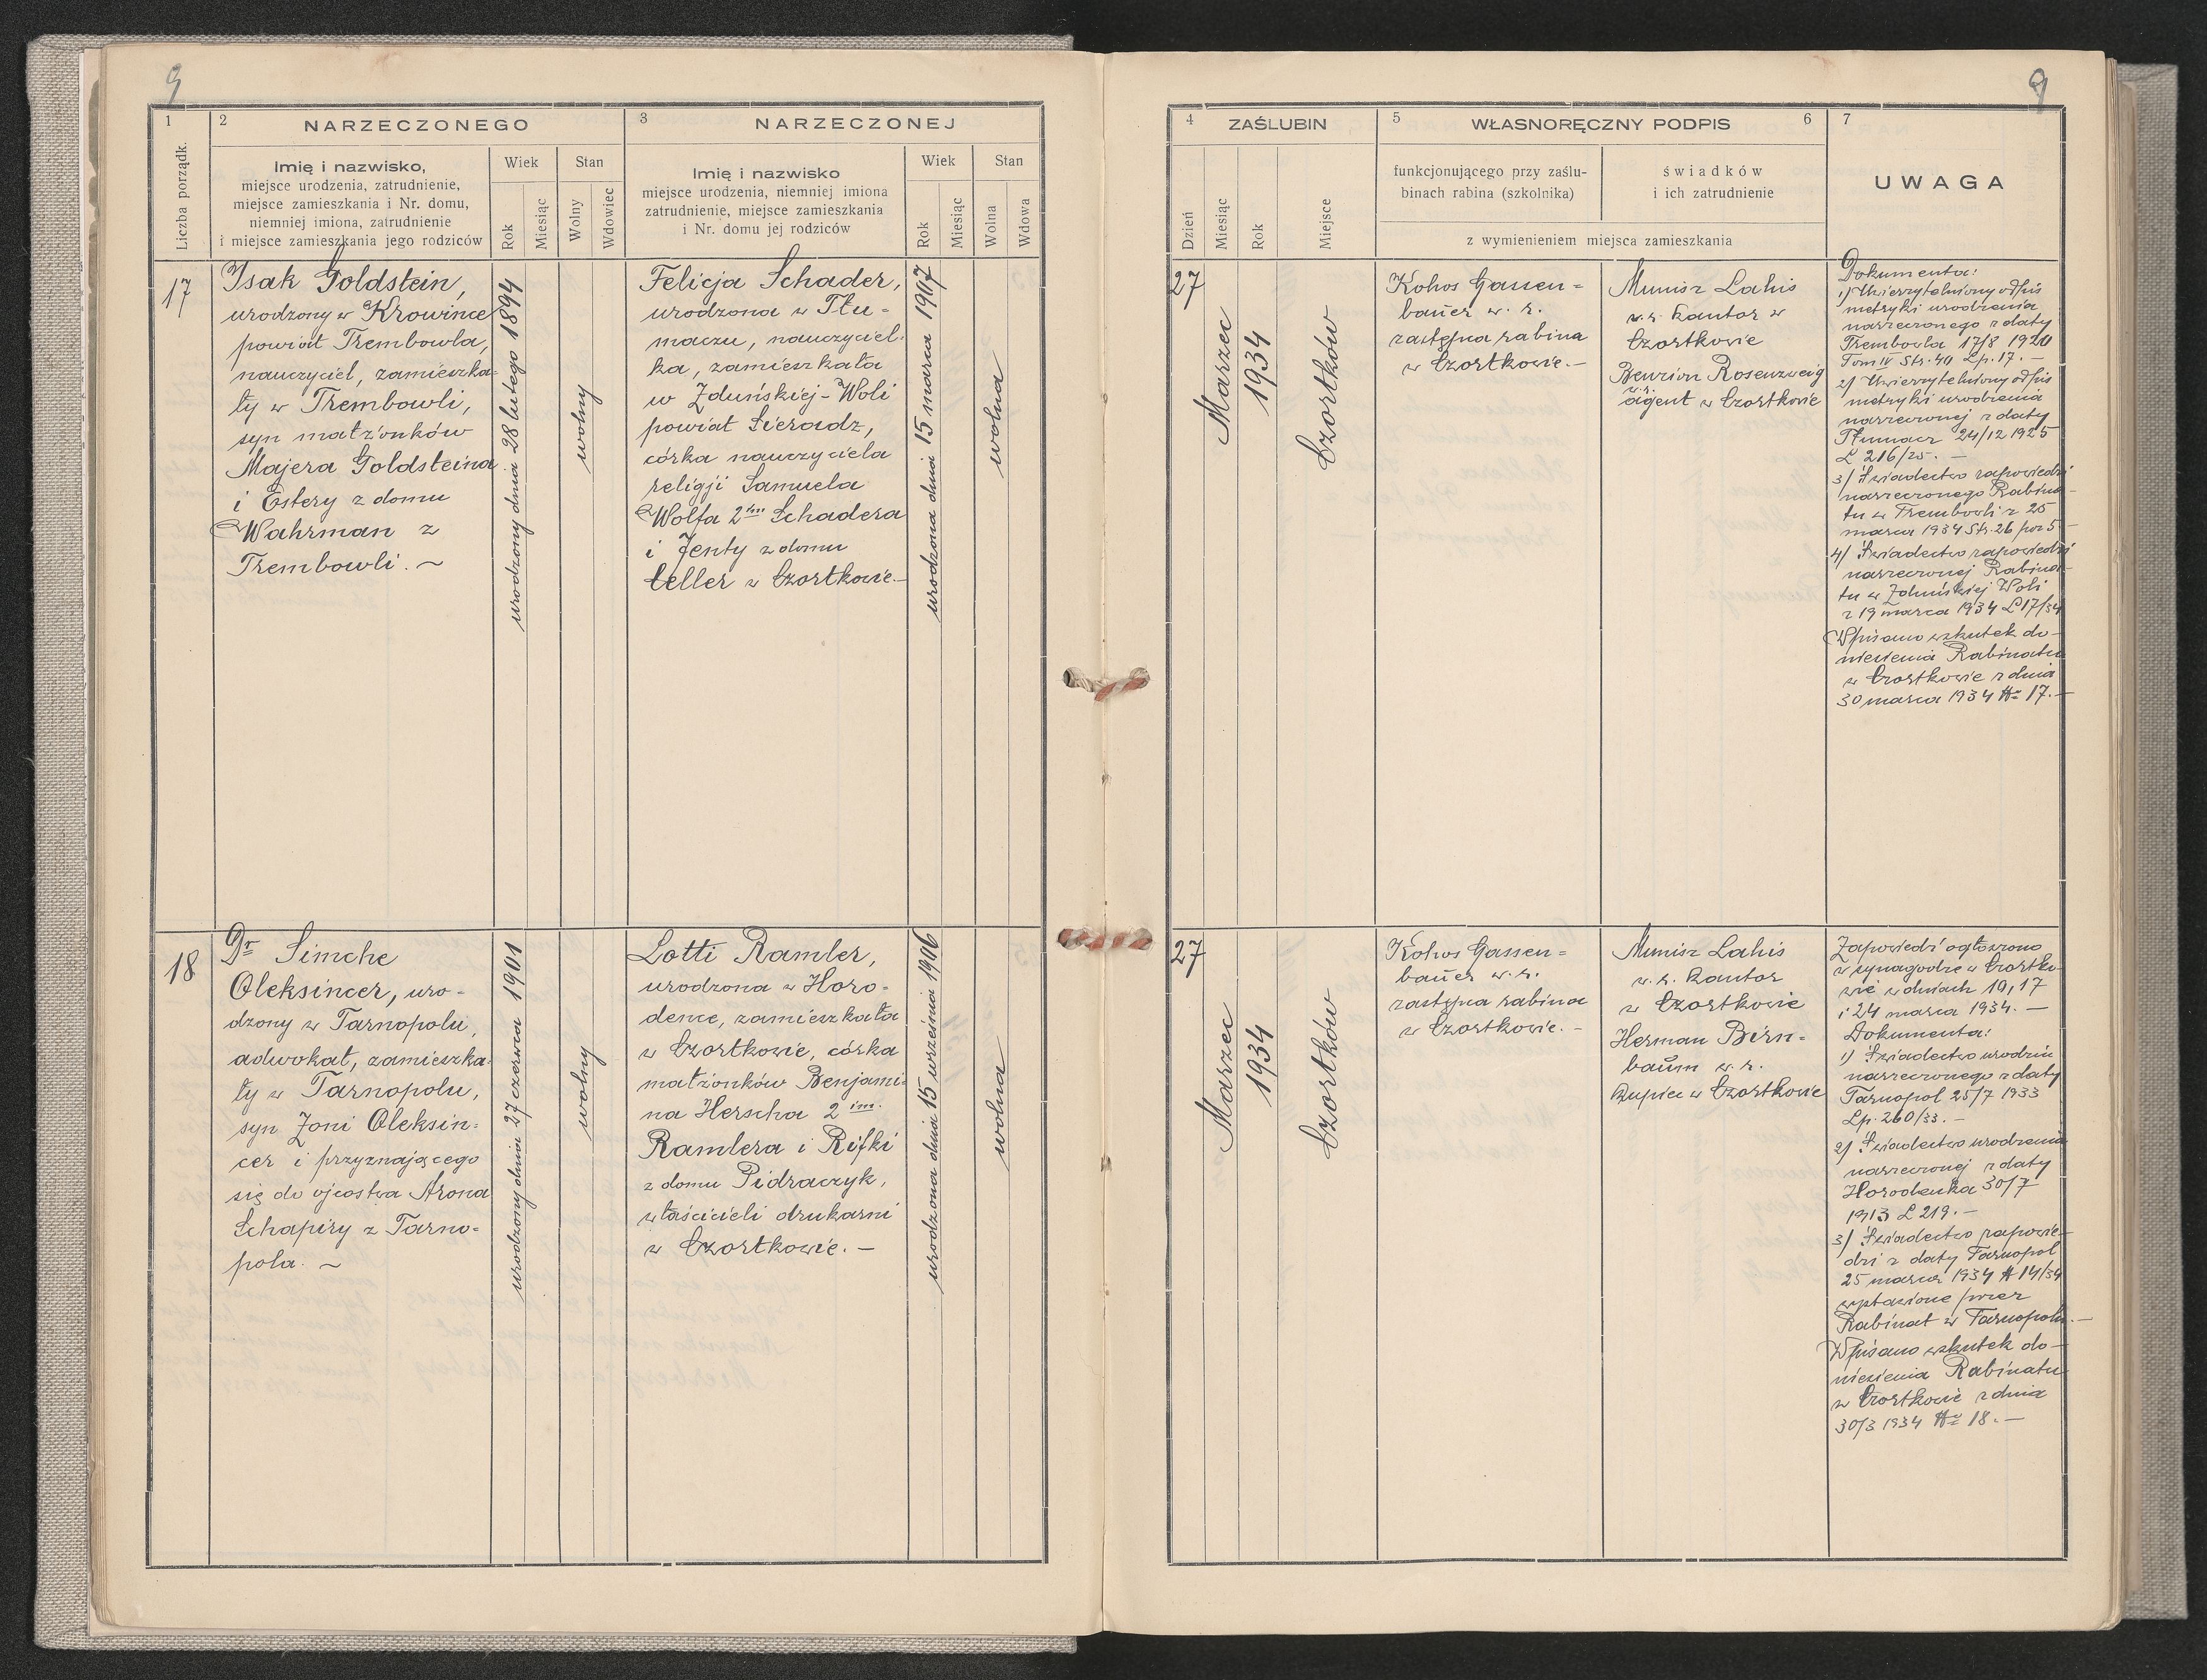 9
1
Liczba porządk.
2
NARZECZONEGO
Imię i nazwisko,
miejsce urodzenia, zatrudnienie,
miejsce zamieszkania i Nr. domu,
niemniej imiona, zatrudnienie
i miejsce zamieszkania jego rodziców
Wiek
Rok
Miesiąc
Stan
Wolny
Wdowiec
3
NARZECZONEJ
Imię i nazwisko
miejsce urodzenia, niemniej imiona
zatrudnienie, miejsce zamieszkania
i Nr. domu jej rodziców
Wiek
Rok
Miesiąc
Stan
Wolna
Wdowa
17
Isak Goldstein,
urodzony w Krowince
powiat Trembowla,
nauczyciel, zamieszka-
ły w Trembowli,
syn małżonków
Majera Goldsteina
i Estery z domu
Wahrman z
Trembowli. ~
urodzony dnia 28 lutego 1894
wolny
Felicja Schader,
urodzona w Tłu-
maczu, nauczyciel-
ka, zamieszkała
w Zduńskiej-Woli
powiat Sieradz,
córka nauczyciela
religji Samuela
Wolfa 2im Schadera
i Jenty z domu
Celler w Czortkowie-
urodzona dnia 15 marca 1907
wolna
18
Dr Simche
Oleksincer, uro-
dzony w Tarnopolu,
adwokat, zamieszka-
ły w Tarnopolu,
syn Zoni Oleksin-
cer i przyznającego
się do ojcostwa Arona
Schapiry z Tarno-
pola. ~
urodzony dnia 27 czerwca 1901
wolny
Lotti Ramler,
urodzona w Horo-
dence, zamieszkała
w Czortkowie, córka
małżonków Benjami-
na Herscha 2 im.
Ramlera i Rifki
z domu Pidraczyk,
właścicieli drukarni
w Czortkowie. -
urodzona dnia 15 września 1906
wolna
9
4
ZAŚLUBIN
Dzień
Miesiąc
Rok
Miejsce
5
WŁASNORĘCZNY PODPIS
6
funkcjonującego przy zaślu-
binach rabina (szkolnika)
świadków
i ich zatrudnienie
z wymienieniem miejsca zamieszkania
7
UWAGA
27
Marzec
1934
Czortków
Kohos Gassen=
bauer w. r.
zastępca rabina
w Czortkowie.-
Munisz Lahis
w.r. kantor w
Czortkowie
Benzion Rosenzweig
w.r.
agent w Czortkowie
Dokumenta:
1) Uwierzytelniony odpis
metryki urodzenia
narzeczonego z daty
Trembowla 17/8 1920
Tom IV Str. 40 Lp. 17. -
2) Uwierzytelniony odpis
metryki urodzenia
narzeczonej z daty
Tłumacz 24/12 1925
L 216/25. -
3) Świadectwo zapowiedzi
narzeczonego Rabina-
tu w Trembowli z 25
marca 1934 Str. 26 poz 5 -
4) Świadectwo zapowiedzi
narzeczonej Rabina-
tu w Zduńskiej Woli
z 19 marca 1934 L 17/34
Wpisano wskutek do-
niesienia Rabinatu
w Czortkowie z dnia
30 marca 1934 No 17. -
27
Marzec
1934
Czortków
Kohos Gassen=
bauer w. r.
zastępca rabina
w Czortkowie. -
Munisz Lahis
w. r. kantor
w Czortkowie
Herman Birn=
baum w. r.
kupiec w Czortkowie
Zapowiedzi ogłoszono
w synagodze w Czortko-
wie w dniach 10, 17
i 24 marca 1934. -
Dokumenta:
1) Świadectwo urodzin
narzeczonego z daty
Tarnopol 25/7 1933
Lp. 260/33. -
2) Świadectwo urodzenia
narzeczonej z daty
Horodenka 30/7
1913 L 219. -
3) Świadectwo zapowie-
dzi z daty Tarnopol
25 marca 1934 # 14/34
wystawione przez
Rabinat w Tarnopolu. -
Wpisano wskutek do-
niesienia Rabinatu
w Czortkowie z dnia
30/3 1934 No 18. -